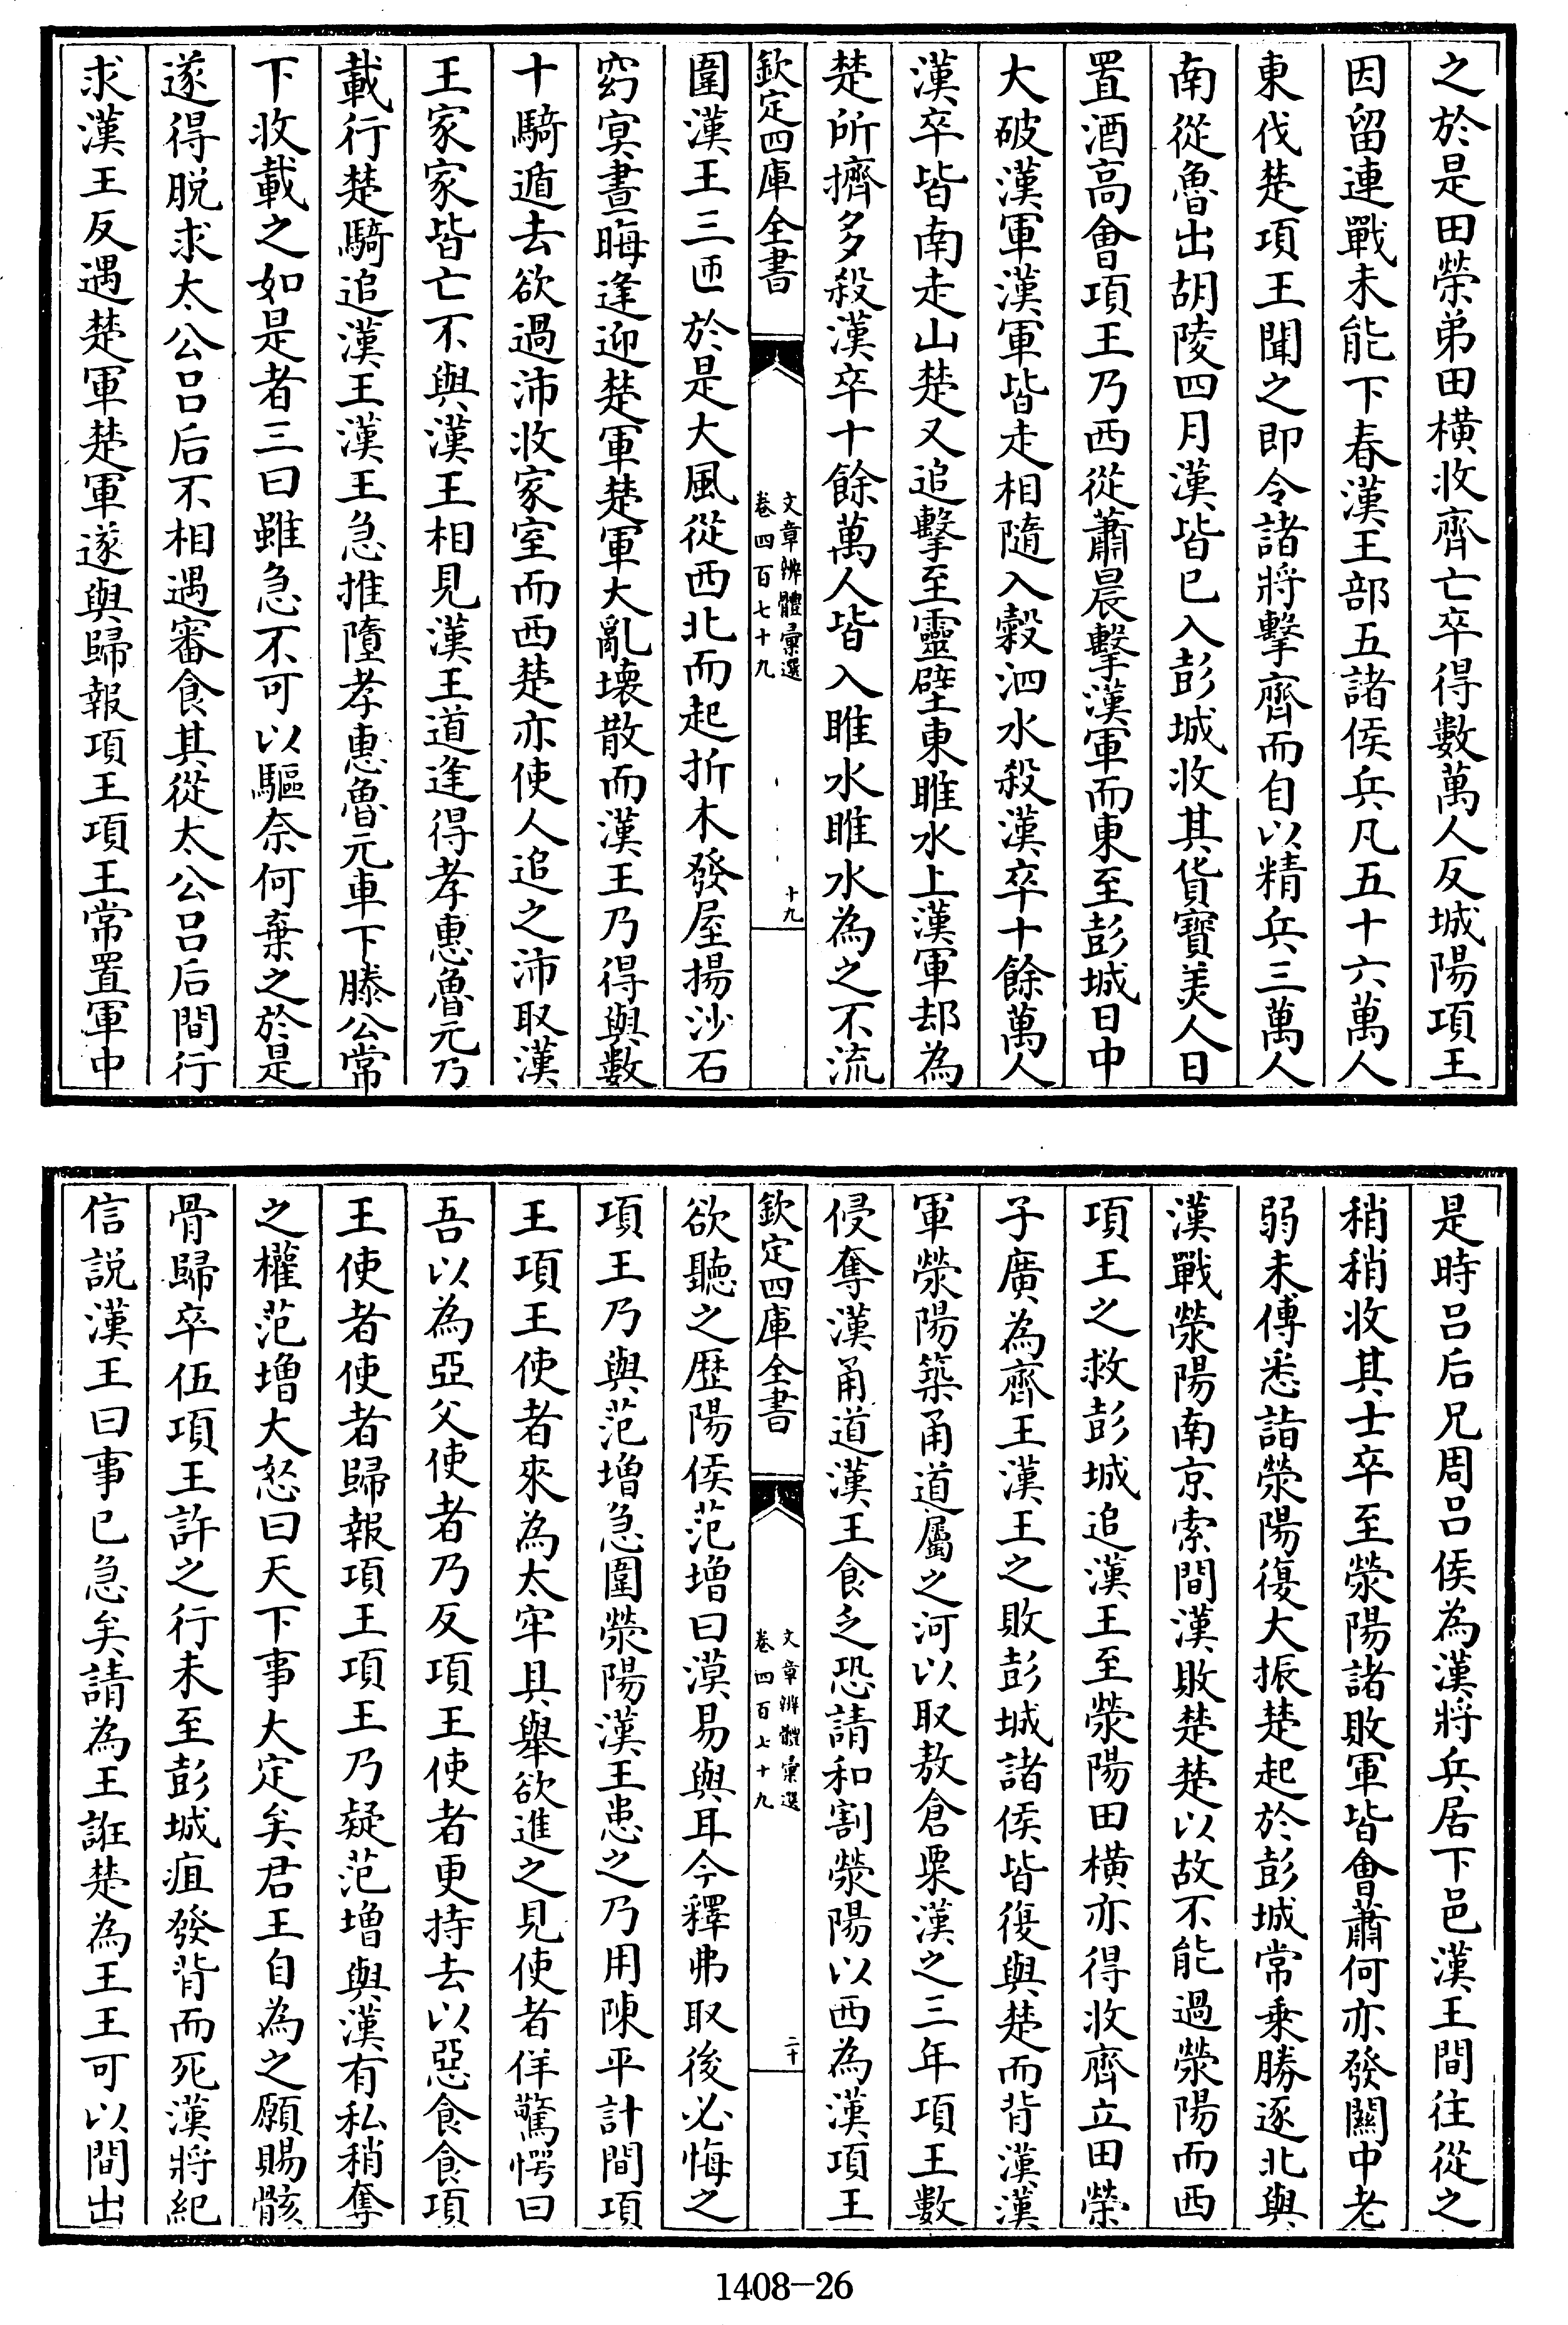 之於是田榮弟田橫收齊亡卒得數萬人反城陽項王
因留連戰未能下春漢王部五諸侯兵凡五十六萬人
東伐楚項王聞之即令諸將擊齊而自以精兵三萬人
南從魯出胡陵四月漢皆已入彭城收其貨寶美人日
置酒高會項王乃西從蕭晨擊漢軍而東至彭城日中
大破漢軍漢軍皆走相隨入穀泗水殺漢卒十餘萬人
漢卒皆南走山楚又追擊至靈壁東睢水上漢軍却為
楚所擠多殺漢卒十餘萬人皆入睢水睢水為之不流
欽定四庫全書
文章辨體彙選
卷四百七十九
十九
圍漢王三匝於是大風從西北而起折木發屋揚沙石
窈冥晝晦逢迎楚軍楚軍大亂壞散而漢王乃得與數
十騎遁去欲過沛收家室而西楚亦使人追之沛取漢
王家家皆亡不與漢王相見漢王道逢得孝惠魯元乃
載行楚騎追漢王漢王急推墮孝惠魯元車下滕公常
下收載之如是者三曰雖急不可以驅奈何棄之於是
遂得脱求太公呂后不相遇審食其從太公呂后間行
求漢王反遇楚軍楚軍遂與歸報項王項王常置軍中
是時呂后兄周呂侯為漢將兵居下邑漢王間往從之
稍稍收其士卒至滎陽諸敗軍皆會蕭何亦發關中老
弱未傅悉詣滎陽復大振楚起於彭城常乗勝逐北與
漢戰滎陽南京索間漢敗楚楚以故不能過滎陽而西
項王之救彭城追漢王至滎陽田橫亦得收齊立田榮
子廣為齊王漢王之敗彭城諸侯皆復與楚而背漢漢
軍滎陽築甬道屬之河以取敖倉粟漢之三年項王數
侵奪漢甬道漢王食乏恐請和割滎陽以西為漢項王
欽定四庫全書
文章辨體彙選
卷四百七十九
二十
欲聽之歴陽侯范增曰漢易與耳今釋弗取後必悔之
項王乃與范增急圍滎陽漢王患之乃用陳平計間項
王項王使者來為太牢具舉欲進之見使者佯驚愕曰
吾以為亞父使者乃反項王使者更持去以惡食食項
王使者使者歸報項王項王乃疑范增與漢有私稍奪
之權范增大怒曰天下事大定矣君王自為之願賜骸
骨歸卒伍項王許之行未至彭城疽發背而死漢將紀
信説漢王曰事已急矣請為王誑楚為王王可以間出
1408-26